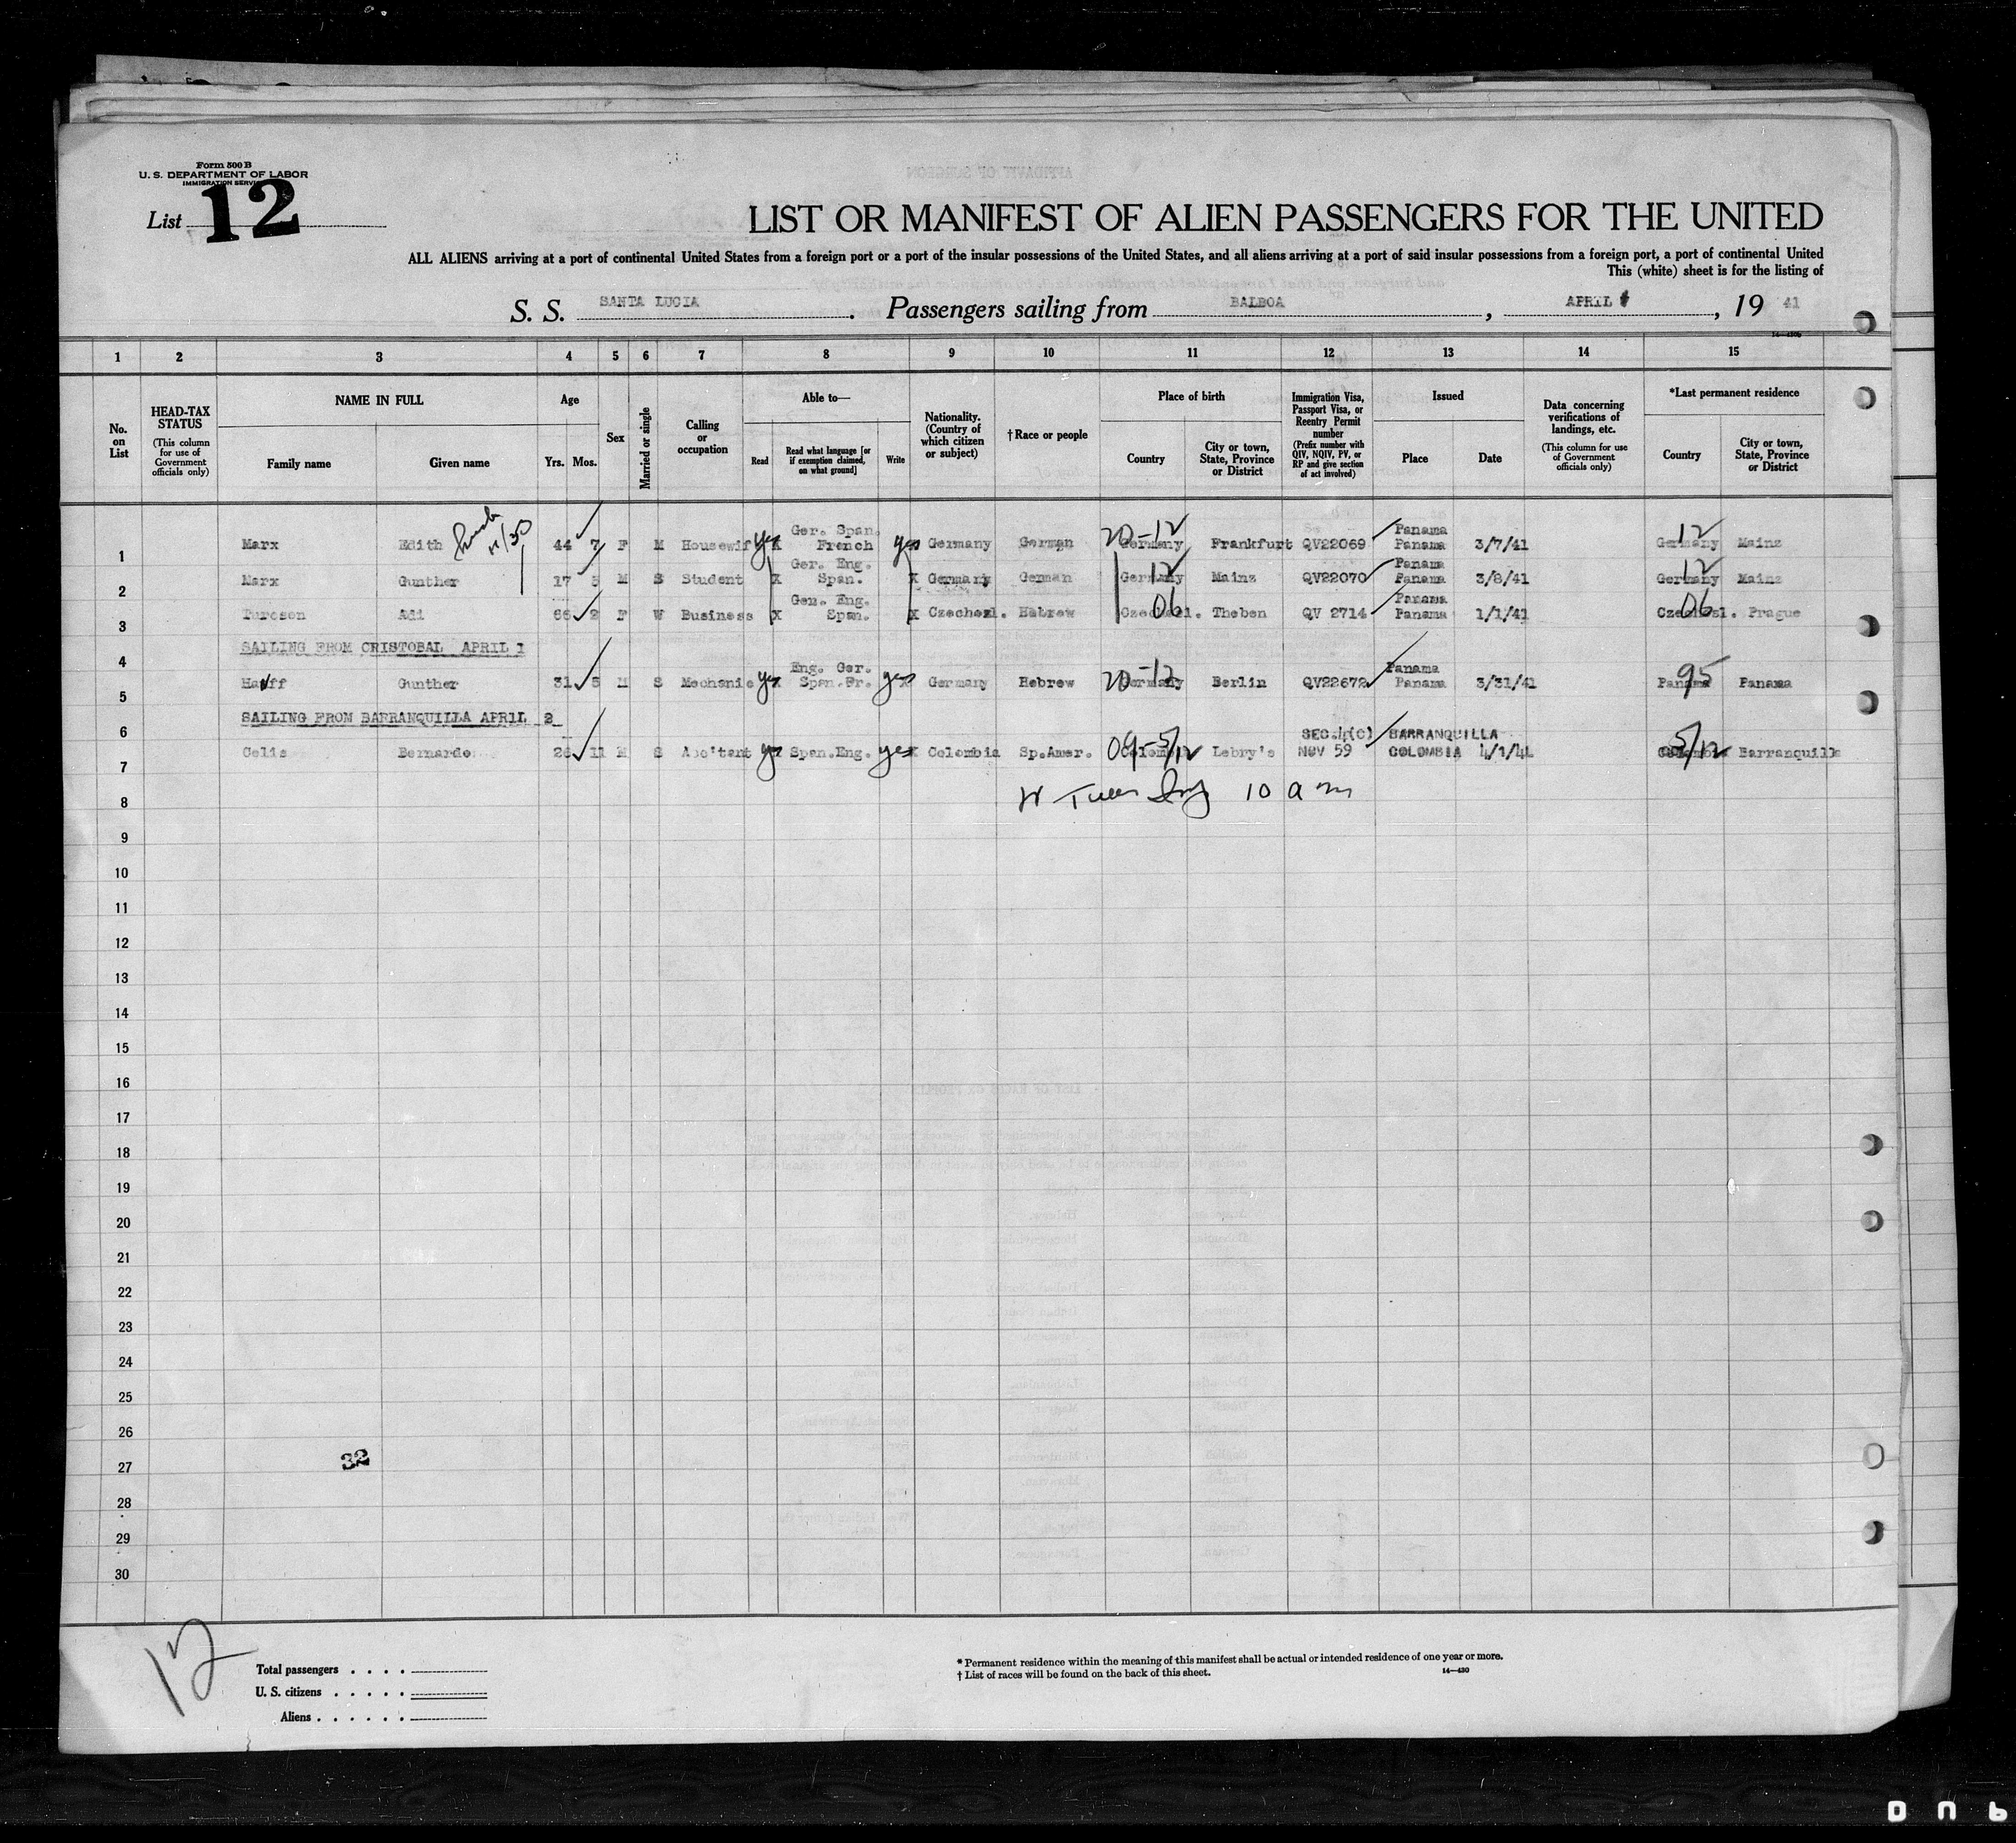 Form 500 B
U. S. DEPARTMENT OF LABOR
IMMIGRATION SERVICE
List 12
LIST OR MANIFEST OF ALIEN PASSENGERS FOR THE UNITED
ALL ALIENS arriving at a port of continental United States from a foreign port or a port of the insular possessions of the United States, and all aliens arriving at a port of said insular possessions from a foreign port, a port of continental United
This (white) sheet is for the listing of
S. S. SANTA LUCIA. Passengers sailing from BALBOA, APRIL, 19 41
14—430b
1 2 3 4 5 6 7 8 9 10 11 12 13 14 15
No. on List
HEAD-TAX STATUS (This column for use of Government officials only)
NAME IN FULL
Family name Given name
Age
Yrs. Mos.
Sex
Married or single
Calling or occupation
Able to—
Read
Read what language [or if exemption claimed, on what ground]
Write
Nationality. (Country of which citizen or subject)
† Race or people
Place of birth
Country
City or town, State, Province or District
Immigration Visa, Passport Visa, or Reentry Permit number (Prefix number with QIV, NQIV, PV, or RP and give section of act involved)
Issued
Place Date
Data concerning verifications of landings, etc. (This column for use of Government officials only)
*Last permanent residence
Country
City or town, State, Province or District
1 Marx Edith 44 7 F M Housewif yes Ger. Span. French yes Germany German 20-12 Germany Frankfurt QV22069 Panama Panama 3/7/41 12 Germany Mainz
2 Marx Gunther 17 5 M S Student X Ger. Eng. Span. X Germany German 12 Germany Mainz QV22070 Panama Panama 3/8/41 12 Germany Mainz
3 Adi 66 2 F W Business X Ger. Eng. Span. X Czechosl. Hebrew 06 Czechosl. Theben QV 2714 Panama Panama 1/1/41 06 Czechosl. Prague
4 SAILING FROM CRISTOBAL APRIL 1
5 Gunther 31 M S Mechanic yes Eng. Ger. Span.Fr. yes Germany Hebrew 20-12 Germany Berlin QV22672 Panama Panama 3/31/41 95 Panama Panama
6 SAILING FROM BARRANQUILLA APRIL 2
7 Celis Bernardo 26 11 M S Acc'tant yes Span.Eng. yes Colombia Sp.Amer. 09-5/12 Colombia Lebry's SEC.4(C) NQV 59 BARRANQUILLA COLOMBIA 4/1/41 5/12 Colombia Barranquilla
8 10 am
9
10
11
12
13
14
15
16
17
18
19
20
21
22
23
24
25
26
27 32
28
29
30
12
Total passengers
U. S. citizens
Aliens
* Permanent residence within the meaning of this manifest shall be actual or intended residence of one year or more.
† List of races will be found on the back of this sheet.
14—430